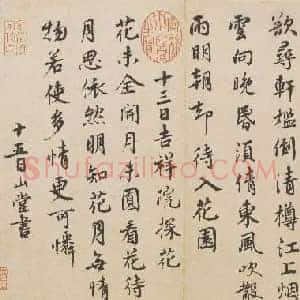 欲尋軒檻倒清樽江上烟
雲向晚昏須倩東風吹散
雨明朝却待入花園
十三日吉祥院探花
花未全開月未圓看花待
月思依然明知花月无情
物若使多情更可憐
十五日山堂書
Shufaziliao.com